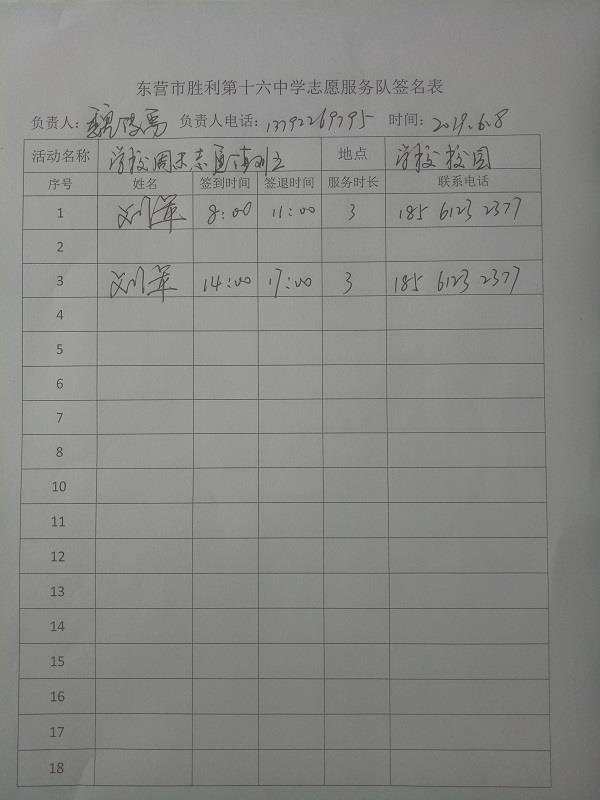 东营市胜利第十六中学志愿服务队签名表
负责人： 负责人电话：13792269795 时间：2019.6.8
活动名称 学校周末志愿 地点 学校校园
序号 姓名 签到时间 签退时间 服务时长 联系电话
1 8:00 11:00 3 185 6123 2377
2
3 14:00 17:00 3 185 6123 2377
4
5
6
7
8
10
11
12
13
14
15
16
17
18